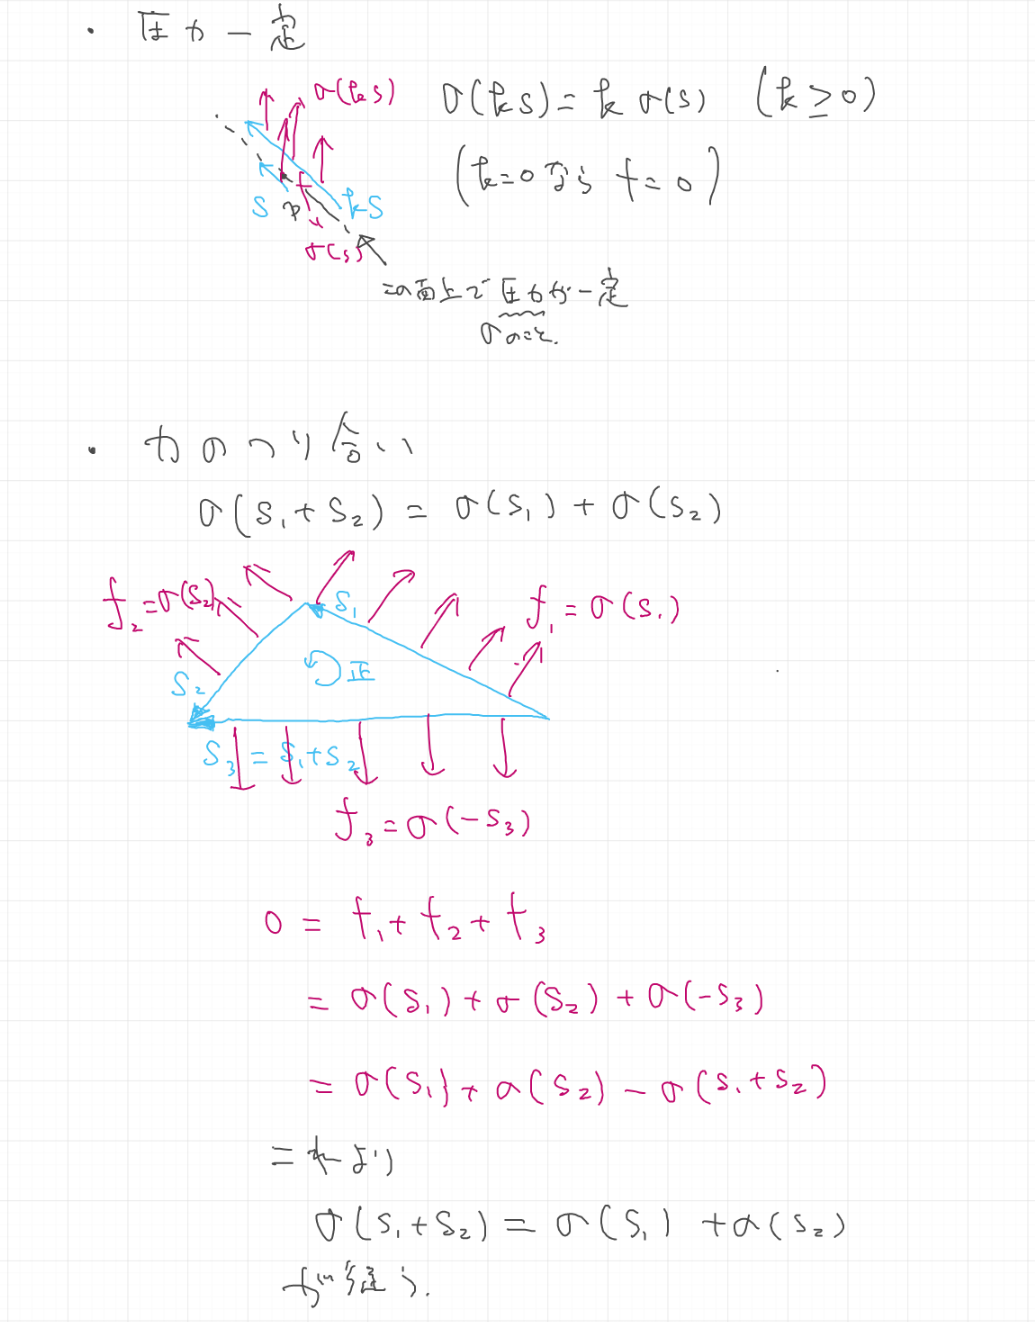 ・ 圧力一定
σ(ks)
σ(ks) = k σ(s) (k≥0)
(k=0なら f=0)
s p ks
σ(s)
この面上で圧力が一定
σのこと.
・ 力のつり合い
σ(s₁+s₂) = σ(s₁) + σ(s₂)
f₂=σ(s₂) s₁ f₁=σ(s₁)
正
s₂
s₃=s₁+s₂
f₃=σ(-s₃)
0 = f₁+f₂+f₃
= σ(s₁)+σ(s₂)+σ(-s₃)
= σ(s₁)+σ(s₂)-σ(s₁+s₂)
これより
σ(s₁+s₂) = σ(s₁)+σ(s₂)
が従う.